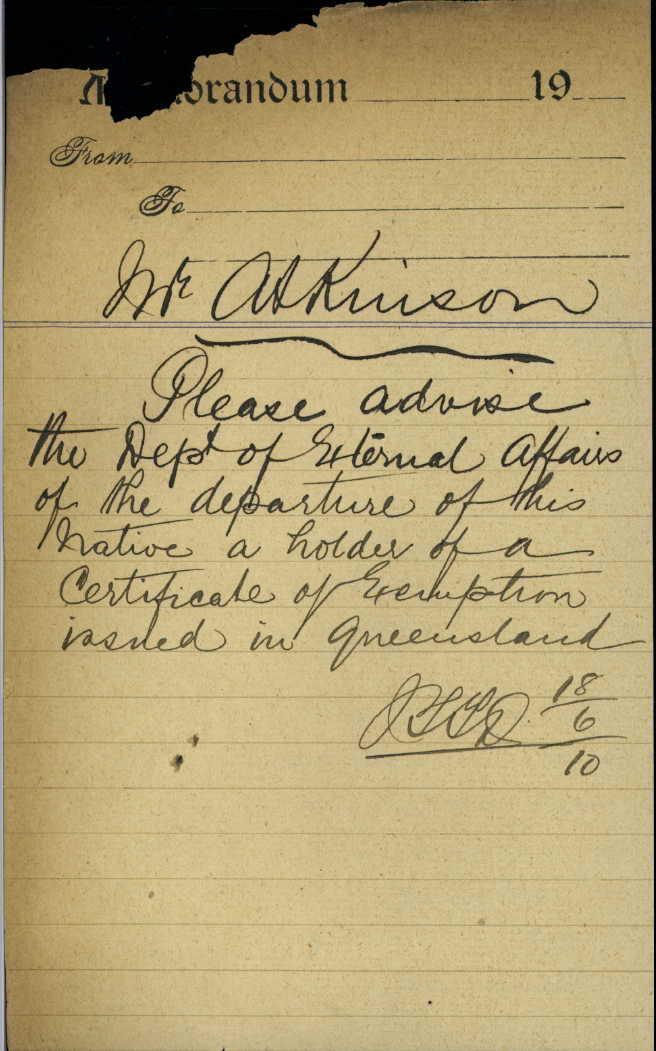 M morandum 19
From
To
Mr Atkinson
Please advise
the Dept of External Affairs
of the departure of this
Native a holder of a
Certificate of Exemption
issued in Queensland
18
6
10